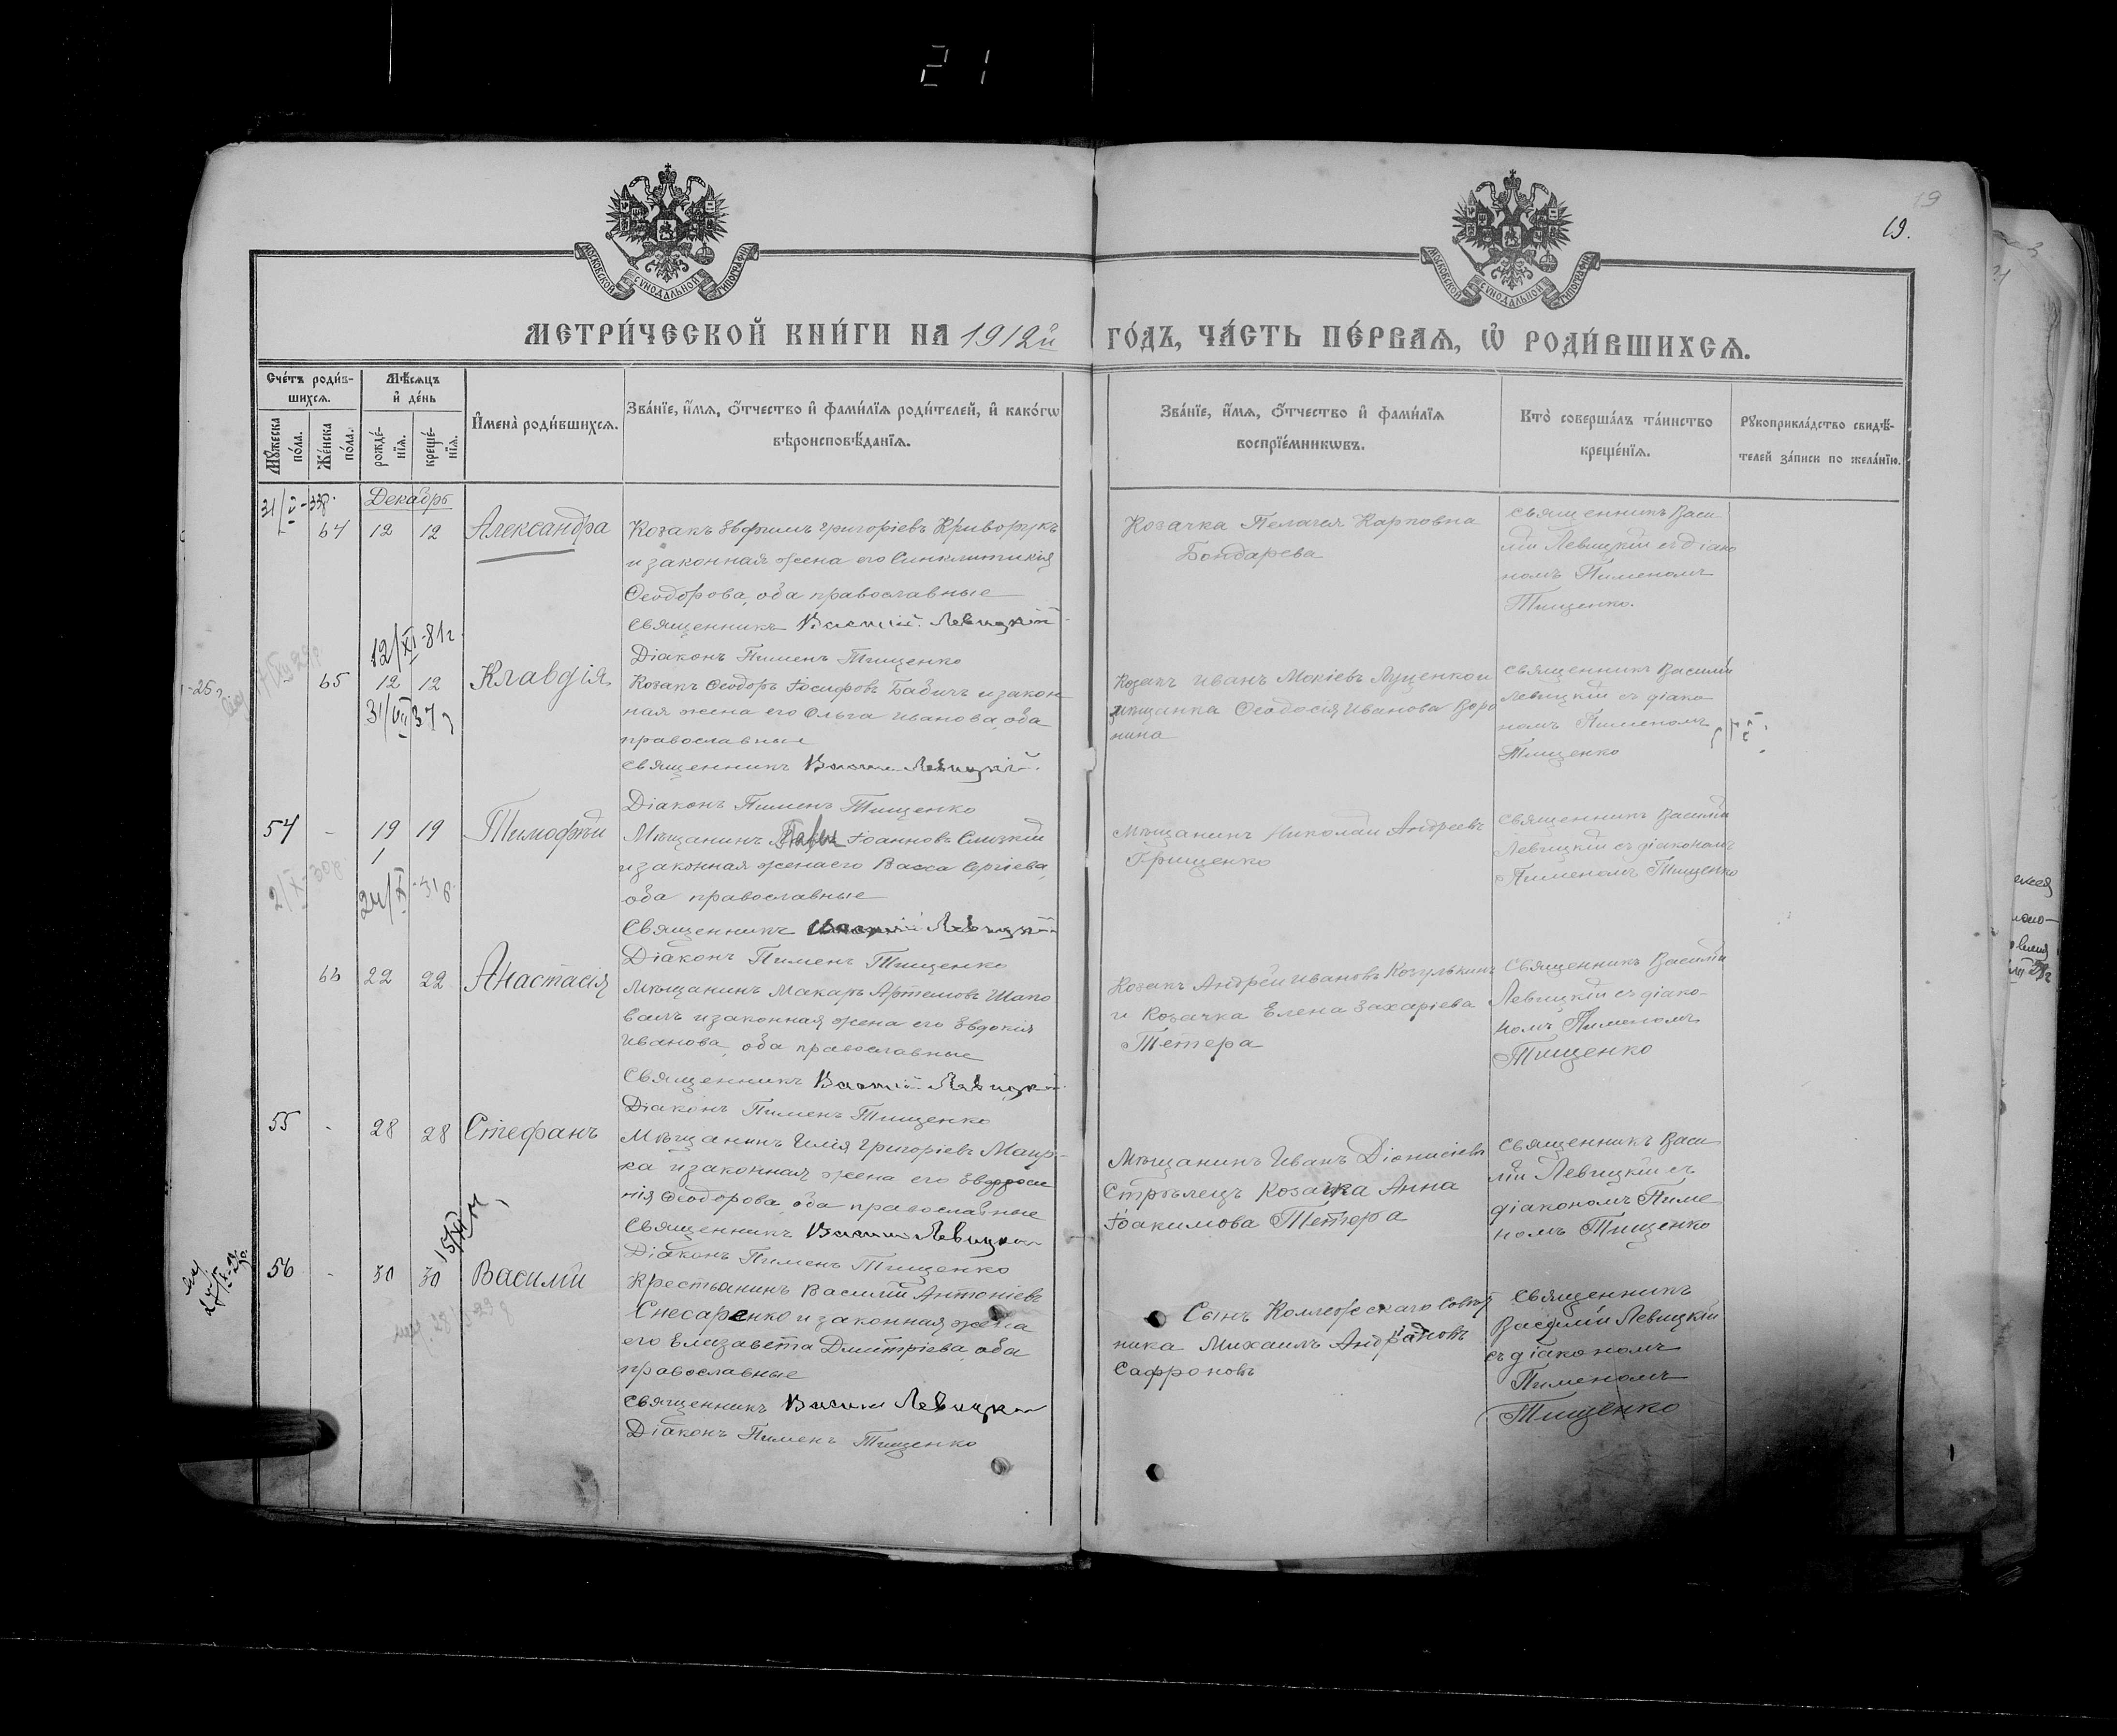 21
19
19.
МОСКОВСКОЙ СУНОДАЛЬНОЙ ТИПОГРАФІИ
МОСКОВСКОЙ СУНОДАЛЬНОЙ ТИПОГРАФІИ
МЕТРИ́ЧЕСКОЙ КНИ́ГИ НА 1912й ГО́ДЪ, ЧА́СТЬ ПЕ́РВАѦ, Ѡ҆ РОДИ́ВШИХСѦ.
Сче́тъ роди́в-
шихсѧ.
Мꙋ́жеска по́ла.
Же́нска по́ла.
Мѣ́сѧцъ
и҆ де́нь
рожде́-
нїѧ.
креще́-
нїѧ.
И҆мена̀ роди́вшихсѧ.
Зва́нїе, и҆́мѧ, ѻ҆́тчество и҆ фами́лїѧ роди́телей, и҆ како́гѡ
вѣроисповѣ́данїѧ.
Зва́нїе, и҆́мѧ, ѻ҆́тчество и҆ фами́лїѧ
воспрїе́мникѡвъ.
Кто̀ соверша́лъ та́инство
креще́нїѧ.
Рꙋкоприкла́дство свидѣ́-
телей за́писи по жела́нїю.
Декабрь
64 12 12 Александра
Козакъ Евфимъ Григоріевъ Криворукъ
и законная жена его Синклитикія
Ѳеодорова, оба православные
Священникъ Василій Левицкій
Діаконъ Пименъ Тищенко
Козачка Пелагея Карповна
Бондарева
Священникъ Васи
лій Левицкій съ діако
номъ Пименомъ
Тищенко.
12/XI-81г.
65 12 12 Клавдія
31/VII 37
Козакъ Ѳеодоръ Іосифовъ Бабичъ и закон
ная жена его Ольга Иванова, оба
православные
Священникъ Василій Левицкій.
Діаконъ Пименъ Тищенко
Козакъ Иванъ Мокіевъ Луценко и
мѣщанка Ѳеодосія Иванова Воро
нина
Священникъ Василій
Левицкій съ діако-
номъ Пименомъ
Тищенко
54 - 19 19 Тимофѣй
Мѣщанинъ Іоанновъ
и законная жена его Васса Сергіева,
оба православные
Священникъ Василій Левицкій
Діаконъ Пименъ Тищенко
Мѣщанинъ Николай Андреевъ
Грищенко
Священникъ Василій
Левицкій съ діакономъ
Пименомъ Тищенко
2/X-30р
24/X-31р.
66 22 22 Анастасія
Мѣщанинъ Макаръ Артемовъ Шапо
валъ и законная жена его Евдокія
Иванова, оба православные
Священникъ Василій Левицкій
Діаконъ Пименъ Тищенко
Козакъ Андрей Ивановъ
и Козачка Елена Захаріева
Тетера
Священникъ Василій
Левицкій съ діако-
номъ Пименомъ
Тищенко
55 - 28 28 Стефанъ
Мѣщанинъ Илія Григоріевъ
ка и законная жена его Евфроси
нія Ѳеодорова, оба православные
Священникъ Василій Левицкій
Діаконъ Пименъ Тищенко
Мѣщанинъ Иванъ Діонисіевъ
Стрѣлецъ Козачка Анна
Іоакимова Тетера
Священникъ Васи
лій Левицкій съ
діакономъ Пиме
номъ Тищенко
56 - 30 30 Василій
Крестьянинъ Василій Антоніевъ
Снесаренко и законная жена
его Елизавета Дмитріева, оба
православные
Священникъ Василій Левицкій
Діаконъ Пименъ Тищенко
Сынъ Коллежскаго Совѣт
ника Михаилъ Андріановъ
Сафроновъ
Священникъ
Василій Левицкій
съ діакономъ
Пименомъ
Тищенко